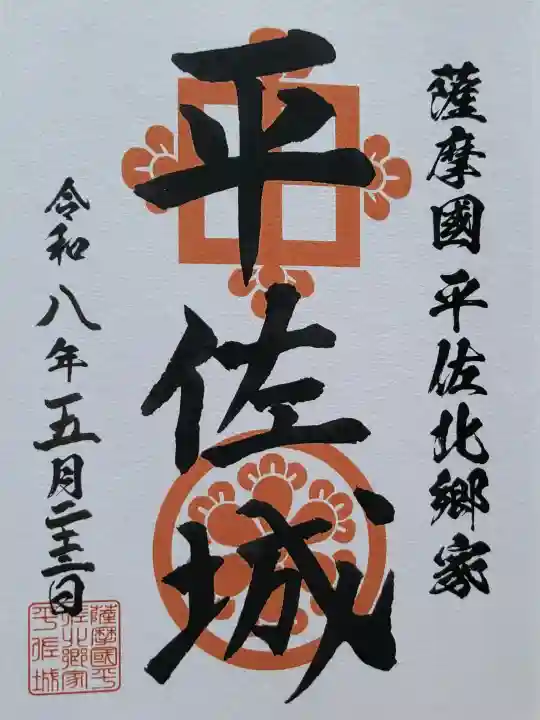 薩摩國平佐北郷家
平佐城
令和八年五月二十三日
薩摩國平
佐北郷家
平佐城